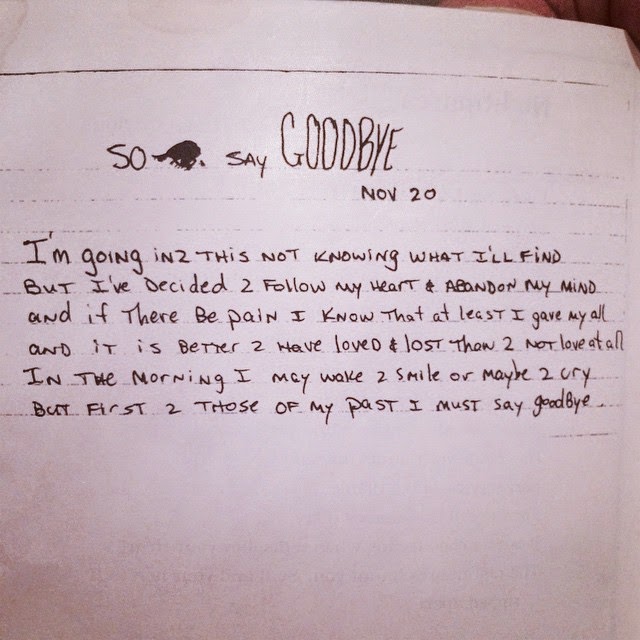 SO say GOODBYE
NOV 20
I'm going in2 this not knowing what I'll find
But I've decided 2 follow my heart & abandon my mind
and if there be pain I know that at least I gave my all
and it is better 2 have loved & lost than 2 not love at all
In the morning I may wake 2 smile or maybe 2 cry
But first 2 those of my past I must say goodbye.